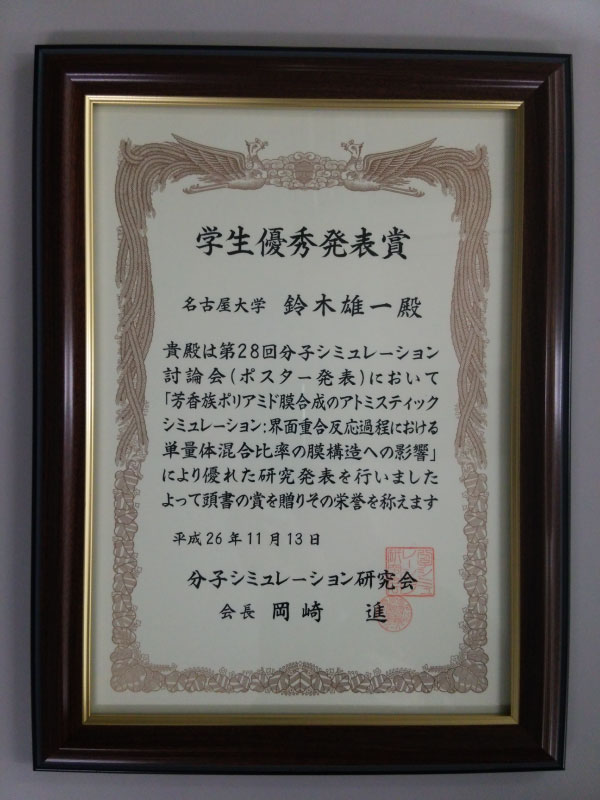 学生優秀発表賞
名古屋大学 鈴木雄一殿
貴殿は第28回分子シミュレーション
討論会(ポスター発表)において
「芳香族ポリアミド膜合成のアトミスティック
シミュレーション:界面重合反応過程における
単量体混合比率の膜構造への影響」
により優れた研究発表を行いました
よって頭書の賞を贈りその栄誉を称えます
平成26年11月13日
分子シミュレーション研究会
会長 岡崎 進